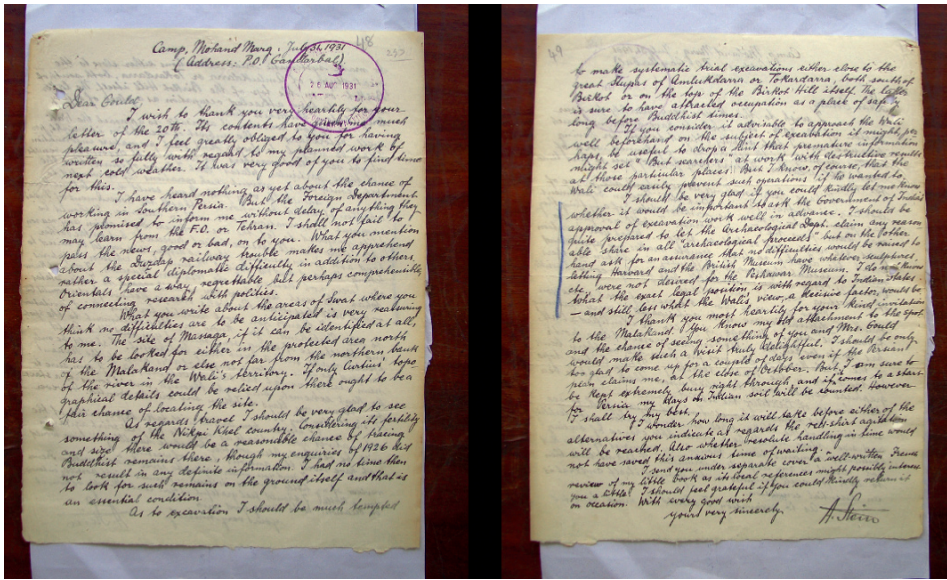 418
Camp, Mohand Marg, July 31, 1931
237
(Address: P.O. Gandarbal)
26 AUG 1931
Dear Gould,
I wish to thank you very heartily for your
letter of the 20th. Its contents have given me much
pleasure, and I feel greatly obliged to you for having
written so fully with regard to my planned work of
next cold weather. It was very good of you to find time
for this.
I have heard nothing as yet about the chance of
working in Southern Persia. But the Foreign Department
has promised to inform me without delay of anything they
may learn from the F.O. or Tehran. I shall not fail to
pass the news, good or bad, on to you. What you mention
about the Duzdap railway trouble makes me apprehend
rather a special diplomatic difficulty in addition to others.
Orientals have a way, regrettable but perhaps comprehensible,
of connecting research with politics.
What you write about the areas of Swat where you
think no difficulties are to be anticipated is very reassuring
to me. The site of Massaga, if it can be identified at all,
has to be looked for either in the protected area north
of the Malakand or else not far from the northern bank
of the river in the Wali's territory. If only Curtius' topo
graphical details could be relied upon there ought to be a
fair chance of locating the site.
As regards travel I should be very glad to see
something of the Nikpi Khel country. Considering its fertility
and size there would be a reasonable chance of tracing
Buddhist remains there, though my enquiries of 1926 did
not result in any definite information. I had no time then
to look for such remains on the ground itself and that is
an essential condition.
As to excavation I should be much tempted
to make systematic trial excavations either close to the
great Stupas of Amlukdarra or Tokardarra, both south of
Birkot or on the top of the Birkot Hill itself. The latter
is sure to have attracted occupation as a place of safety
long before Buddhist times.
If you consider it advisable to approach the Wali
well beforehand on the subject of excavation it might per
haps be useful to drop a hint that premature information
might set "But searchers" at work with destructive results
at those particular places. But I know, of course, that the
Wali could easily prevent such operations if he wanted to.
I should be very glad if you could kindly let me know
whether it would be important to ask the Government of India's
approval of excavation work well in advance. I should be
quite prepared to let the Archaeological Dept. claim any reason
able share in all "archaeological proceeds" but on the other
hand ask for an assurance that no difficulties would be raised to
letting Harvard and the British Museum have whatever sculptures,
etc. were not desired for the Peshawar Museum. I do not know
what the exact legal position is with regard to Indian States
– and still less what the Wali's view, a decisive factor, would be.
I thank you most heartily for your kind invitation
to the Malakand. You know my old attachment to the spot
and the chance of seeing something of you and Mrs. Gould
would make such a visit truly delightful. I should be only
too glad to come up for a couple of days even if the Persian
plan claims me, at the close of October. But I am sure to
be kept extremely busy right through and if it comes to a start
for Persia my days on Indian soil will be counted. However
I shall try my best.
I wonder how long it will take before either of the
alternatives you indicate as regards the red-shirt agitation
will be reached. Also whether resolute handling in time would
not have saved this anxious time of waiting.
I send you under separate cover a well-written French
review of my little book as its local references might possibly interest
you a little. I should feel grateful if you could kindly return it
on occasion. With every good wish
yours very sincerely,
A. Stein